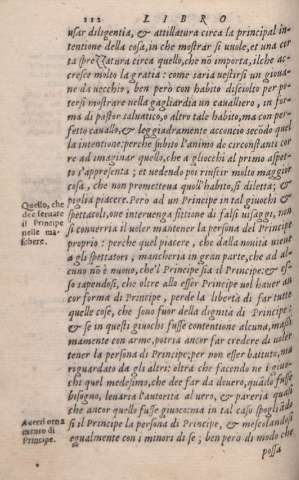 112 LIBRO
usar diligentia, & attillatura circa la principal in-
tentione della cosa, in che mostrar si vuole, et una cer
ta sprezzatura circa quello, che nō importa, ilche ac-
cresce molto la gratia: come saria vestirsi un giova-
ne da vecchio, ben però con habito disciolto per po-
tersi mostrare nella gagliardia un cavalliero, in for-
ma di pastor salvatico, o altro tale habito, ma con per-
fetto cavallo, & leggiadramente acconcio secōdo quel
la intentione: perche subito l'animo de circonstanti cor
re ad imaginar quello, che a gliocchi al primo aspet-
to s'appresenta; et vedendo poi riuscir molto maggior
cosa, che non prometteva quell'habito, si diletta; &
piglia piacere. Però ad un Principe in tai giuochi &
spettacoli, ove intervenga fittione di falsi visaggi, non
si converria il voler mantener la persona del Principe
proprio: perche quel piacere, che dalla novità viene
a gli spettatori, mancheria in gran parte, che ad al-
cuno nō è nuovo, che'l Principe sia il Principe: & es-
so sapendosi, che oltre allo esser Principe vol haver an
cor forma di Principe, perde la libertà di far tutte
quelle cose, che sono fuor della dignità di Principe:
& se in questi giuochi fusse contentione alcuna, mass
mamente con arme, potria ancor far credere di voler
tener la persona di Principe, per non esser battuto, ma
riguardato da gli altri: oltra che facendo ne i giuo-
chi quel medesimo, che dee far da dovero, quādo fusse
bisogno, levaria l'autorità al vero, & pareria quasi
che ancor quello fusse giuoco: ma in tal caso spogliādo
si il Principe la persona di Principe, & mescolandosi
egualmente con i minori di se; ben però di modo che
possa
Quello, che
dee servare
il Principe
nelle ma-
schere.
Principe.